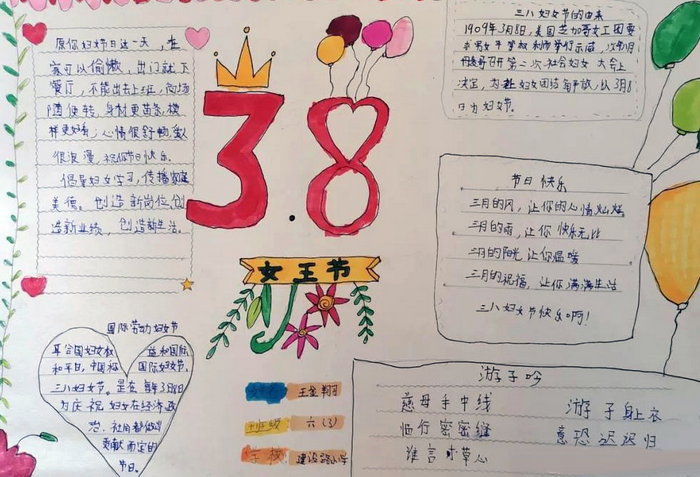 愿你妇女节日这一天，在
家可以偷懒，出门就下
餐厅，不能出去上班，商场
随便转，身材更苗条，模
样更好看，心情很舒畅，
很浪漫，祝你节日快乐
倡导妇女学习，传播家庭
美德。创造新岗位，创
造新业绩，创造新生活。
3.8
女王节
三八妇女节的由来
1909年3月8日，美国芝加哥女工因要
求男女平等权利而举行示威，次年8月
丹麦哥召开第二次社会妇女大会上
决定，为赴妇女团结每年放，以3月8
日为妇女节。
节日快乐
三月的风，让你的心情灿烂
三月的雨，让你快乐无比
三月的阳光，让你温暖
三月的祝福，让你满满生活
三八妇女节快乐啊！
国际劳动妇女节
联合国妇女权益和国际
和平日，中国称国际妇女节、
三八妇女节。是在每年3月8日
为庆祝妇女在经济、政
治、社会都做出
贡献而定的
节日。
班级 六（3）
学校 建设路小学
游子吟
慈母手中线 游子身上衣
临行密密缝 意恐迟迟归
谁言寸草心